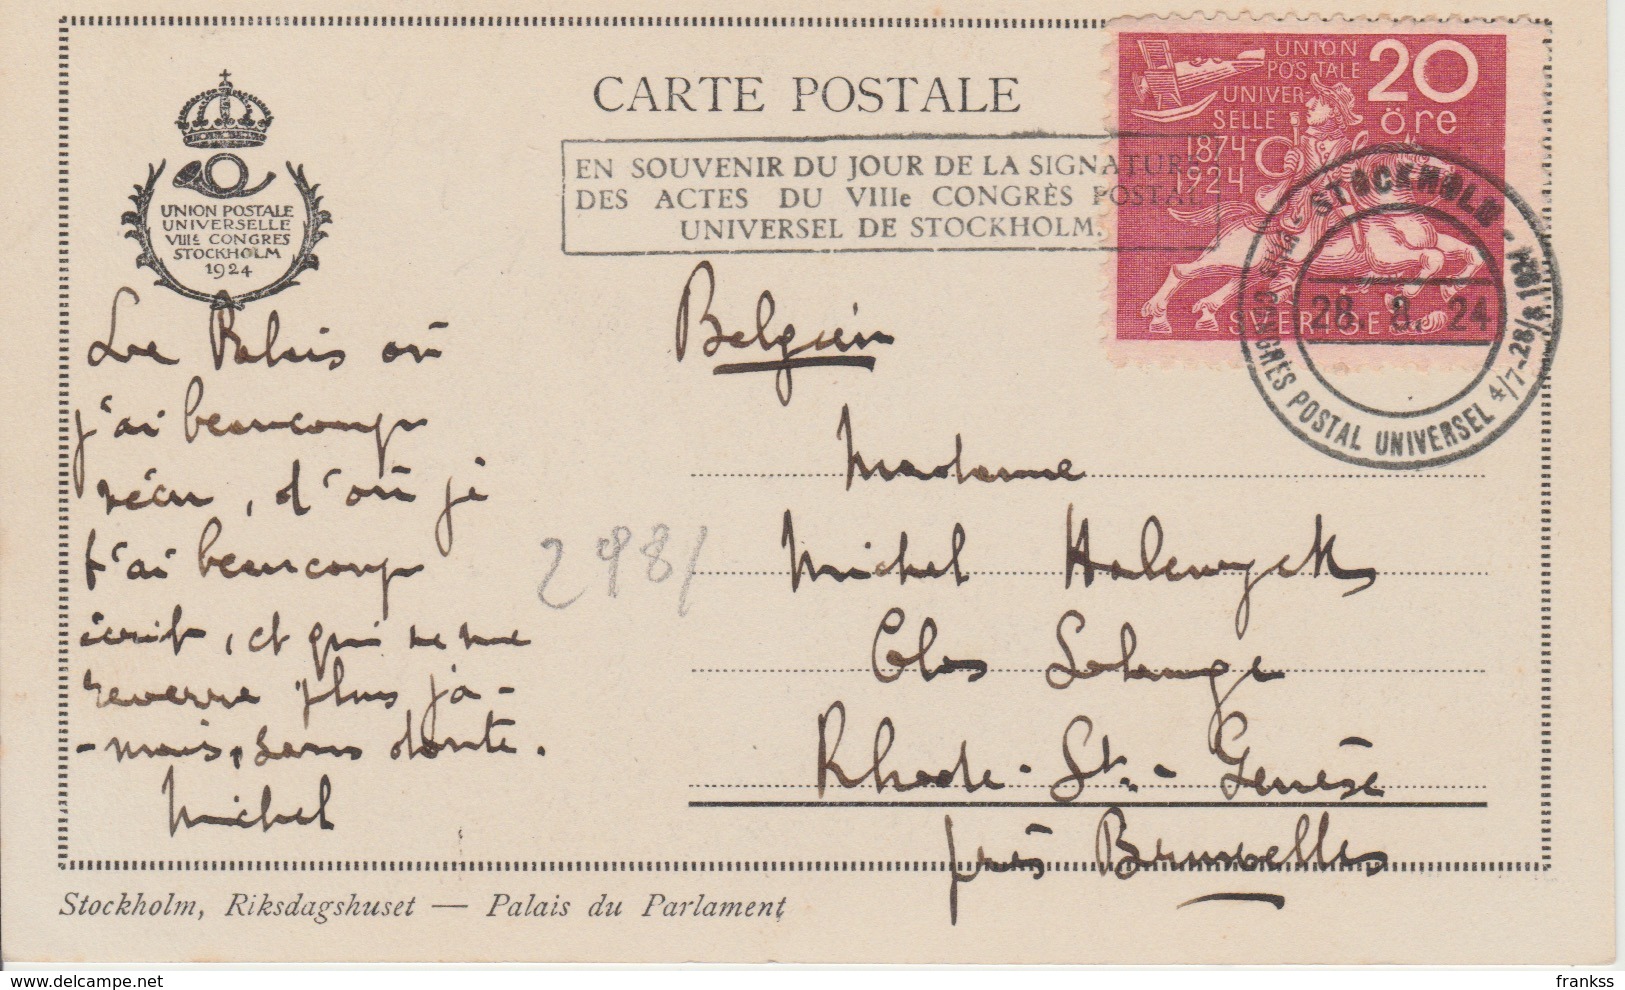 CARTE POSTALE
UNION POSTALE
UNIVERSELLE
VIIIE CONGRES
STOCKHOLM
1924
EN SOUVENIR DU JOUR DE LA SIGNATURE
DES ACTES DU VIIIe CONGRÈS POSTAL
UNIVERSEL DE STOCKHOLM.
UNION
POSTALE
UNIVER-
SELLE
1874-
1924
20
öre
SVERIGE
STOCKHOLM
28. 8. 24
CONGRÈS POSTAL UNIVERSEL 4/7-28/8 1924
Le Palais où
j'ai beaucoup
vécu, d'où je
t'ai beaucoup
écrit, et qui ne me
reverra plus ja-
-mais, sans doute.
Michel
2981
Belgien
Madame
Michel Halewyck
Clos Solange
Rhode-St.-Genèse
près Bruxelles
Stockholm, Riksdagshuset — Palais du Parlament
delcampe.net
frankss